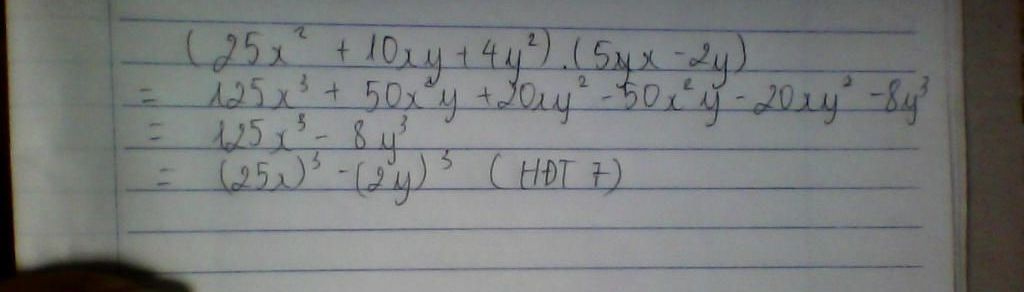 (25x² + 10xy + 4y²).(5yx - 2y)
= 125x³ + 50x²y + 20xy² - 50x²y - 20xy² - 8y³
= 125x³ - 8y³
= (25x)³ - (2y)³ (HĐT 7)